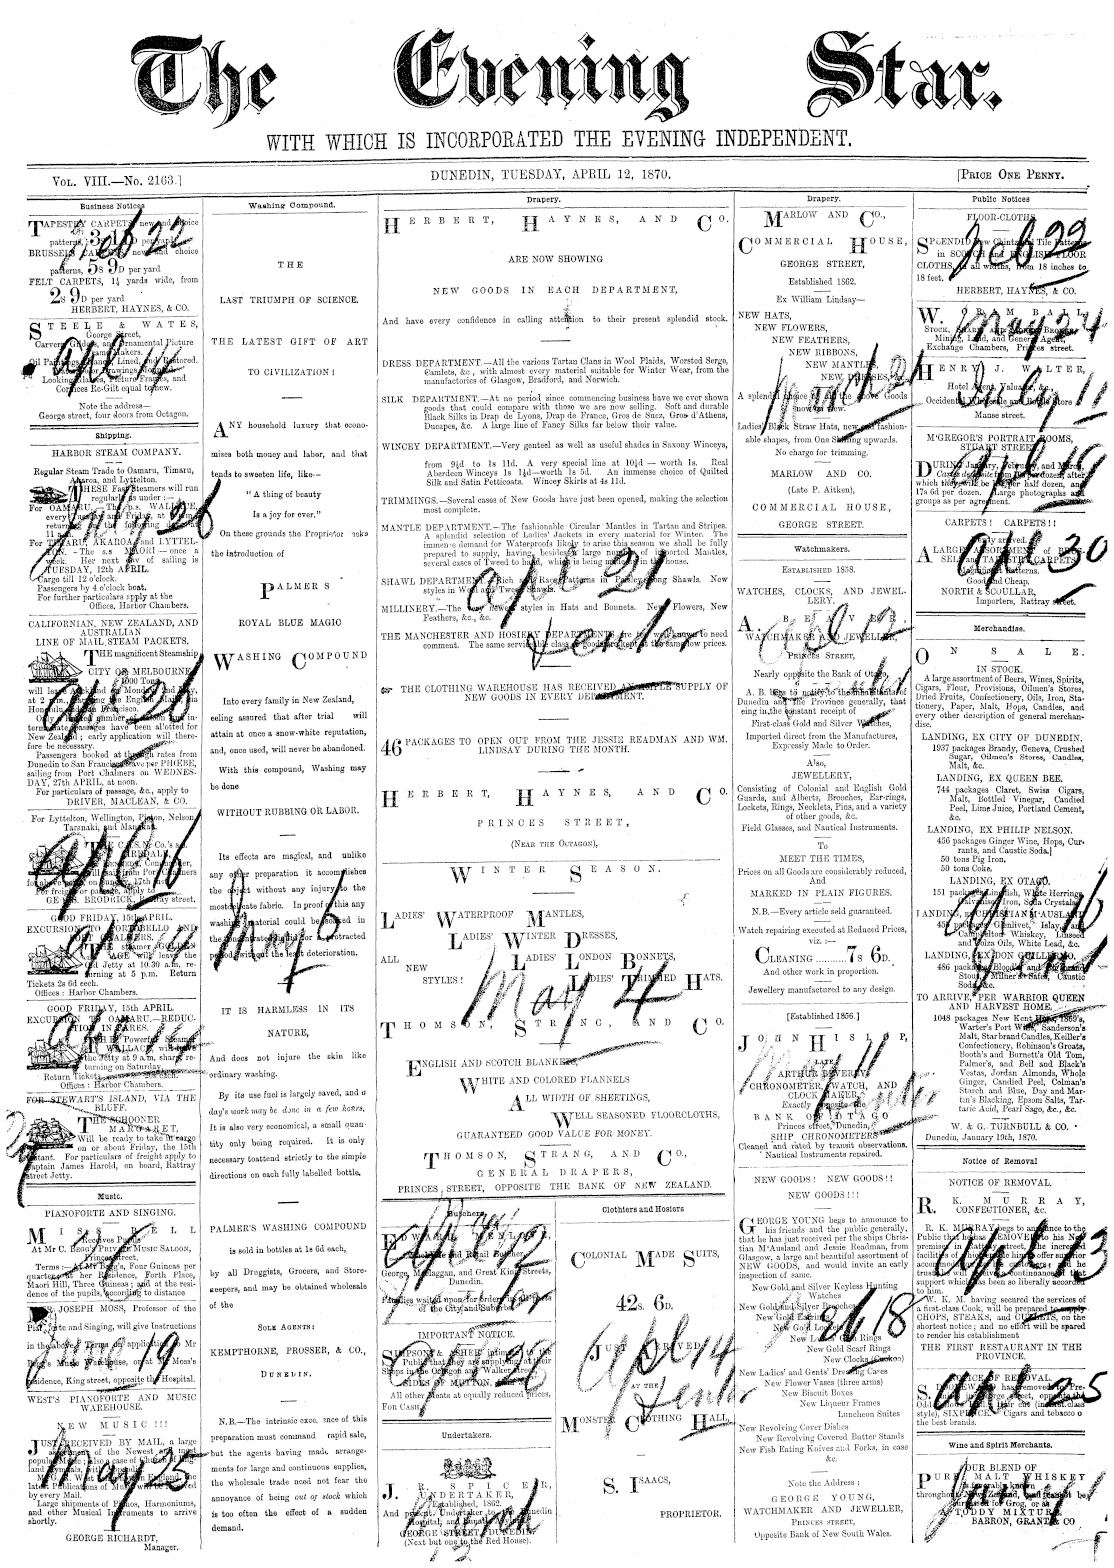 The Evening Star.
WITH WHICH IS INCORPORATED THE EVENING INDEPENDENT.
VOL. VIII.—No. 2163.]
DUNEDIN, TUESDAY, APRIL 12, 1870.
[PRICE ONE PENNY.
Business Notices
TAPESTRY CARPETS, new and choice
patterns, per yard
BRUSSELS CARPETS, new and choice
patterns, 5S 9D per yard
FELT CARPETS, 1¼ yards wide, from
2S 9D per yard
HERBERT, HAYNES, & CO.
Feb 22
STEELE & WATES,
George Street,
Carvers, Gilders, and Ornamental Picture
Frame Makers.
Oil Paintings Cleaned, Lined, and Restored.
Looking Glasses, Picture Frames, and
Cornices Re-Gilt equal to new.
Note the address—
George street, four doors from Octagon.
Shipping.
HARBOR STEAM COMPANY.
Regular Steam Trade to Oamaru, Timaru,
Akaroa, and Lyttelton.
THESE Fast Steamers will run
regularly as under :—
For TIMARU, AKAROA, and LYTTEL-
TON.—The s.s MAORI—once a
week. Her next day of sailing is
TUESDAY, 12th APRIL.
Cargo till 12 o'clock.
Passengers by 4 o'clock boat.
For further particulars apply at the
Offices, Harbor Chambers.
CALIFORNIAN, NEW ZEALAND, AND
AUSTRALIAN
LINE OF MAIL STEAM PACKETS.
THE magnificent Steamship
CITY OF MELBOURNE,
1000 Tons,
fore be necessary.
Passengers booked at through rates from
Dunedin to San Francisco, leave per PHŒBE,
sailing from Port Chalmers on WEDNES-
DAY, 27th APRIL, at noon.
For particulars of passage, &c., apply to
DRIVER, MACLEAN, & CO.
For Lyttelton, Wellington, Picton, Nelson,
Taranaki, and Manukau.
apl 16
GOOD FRIDAY, 15th APRIL.
EXCURSION TO PORTOBELLO AND
PORT CHALMERS.
THE steamer GOLDEN
AGE will leave the
Old Jetty at 10.30 a.m., re-
turning at 5 p.m. Return
Tickets 2s 6d each.
Offices : Harbor Chambers.
GOOD FRIDAY, 15th APRIL
EXCURSION TO OAMARU.—REDUC-
TION IN FARES.
THE Powerful Steamer
WALLACE will leave
the Jetty at 9 a.m, sharp, re-
turning on Saturday.
Offices : Harbor Chambers.
FOR STEWART'S ISLAND, VIA THE
BLUFF.
THE SCHOONER
MARGARET,
Will be ready to take in cargo
on or about Friday, the 15th
instant. For particulars of freight apply to
Captain James Harold, on board, Rattray
street Jetty.
Music.
PIANOFORTE AND SINGING.
MISS BELL
Receives Pupils
At Mr C. BEGG'S PRIVATE MUSIC SALOON,
Princes street.
Terms :—At Mr Begg's, Four Guineas per
quarter; at her Residence, Forth Place,
Maori Hill, Three Guineas; and at the resi-
dence of the pupils, according to distance
MR JOSEPH MOSS, Professor of the
Pianoforte and Singing, will give Instructions
in the above. Terms on application at Mr
Begg's Music Warehouse, or at Mr Moss's
residence, King street, opposite the Hospital.
WEST'S PIANOFORTE AND MUSIC
WAREHOUSE.
NEW MUSIC!!!
JUST RECEIVED BY MAIL, a large
by every Mail.
Large shipments of Pianos, Harmoniums,
and other Musical Instruments to arrive
shortly.
GEORGE RICHARDT,
Manager.
May 25
Washing Compound.
THE
LAST TRIUMPH OF SCIENCE.
THE LATEST GIFT OF ART
TO CIVILIZATION!
ANY household luxury that econo-
mises both money and labor, and that
tends to sweeten life, like—
"A thing of beauty
Is a joy for ever,"
On these grounds the Proprietor asks
the introduction of
PALMER'S
ROYAL BLUE MAGIC
WASHING COMPOUND
Into every family in New Zealand,
feeling assured that after trial will
attain at once a snow-white reputation,
and, once used, will never be abandoned.
With this compound, Washing may
be done
WITHOUT RUBBING OR LABOR.
Its effects are magical, and unlike
any other preparation it accomplishes
the object without any injury to the
most delicate fabric. In proof of this any
washing material could be soaked in
the concentrated liquid for a protracted
period without the least deterioration.
May 6
IT IS HARMLESS IN ITS
NATURE,
And does not injure the skin like
ordinary washing.
By its use fuel is largely saved, and a
day's work may be done in a few hours.
It is also very economical, a small quan-
tity only being required. It is only
necessary to attend strictly to the simple
directions on each fully labelled bottle.
PALMER'S WASHING COMPOUND
is sold in bottles at 1s 6d each,
by all Druggists, Grocers, and Store-
keepers, and may be obtained wholesale
of the
SOLE AGENTS:
KEMPTHORNE, PROSSER, & CO.,
DUNEDIN.
N.B.—The intrinsic excellence of this
preparation must command rapid sale,
but the agents having made arrange-
ments for large and continuous supplies,
the wholesale trade need not fear the
annoyance of being out of stock which
is too often the effect of a sudden
demand.
Drapery.
HERBERT, HAYNES, AND CO.
ARE NOW SHOWING
NEW GOODS IN EACH DEPARTMENT,
And have every confidence in calling attention to their present splendid stock.
DRESS DEPARTMENT.—All the various Tartan Clans in Wool Plaids, Worsted Serge,
Camlets, &c., with almost every material suitable for Winter Wear, from the
manufactories of Glasgow, Bradford, and Norwich.
SILK DEPARTMENT.—At no period since commencing business have we ever shown
goods that could compare with those we are now selling. Soft and durable
Black Silks in Drap de Lyons, Drap de France, Gros de Suez, Gros d'Athens,
Ducapes, &c. A large line of Fancy Silks far below their value.
WINCEY DEPARTMENT.—Very genteel as well as useful shades in Saxony Winceys,
from 9½d to 1s 11d. A very special line at 10½d — worth 1s. Real
Aberdeen Winceys 1s 1½d—worth 1s 5d. An immense choice of Quilted
Silk and Satin Petticoats. Wincey Skirts at 4s 11d.
TRIMMINGS.—Several cases of New Goods have just been opened, making the selection
most complete.
MANTLE DEPARTMENT.—The fashionable Circular Mantles in Tartan and Stripes.
A splendid selection of Ladies' Jackets in every material for Winter. The
immense demand for Waterproofs likely to arise this season we shall be fully
prepared to supply, having, besides a large number of imported Mantles,
several cases of Tweed to hand, which is being made up in the house.
SHAWL DEPARTMENT.—Rich and Rare Patterns in Paisley Long Shawls. New
styles in Wool and Tweed Shawls.
MILLINERY.—The newest styles in Hats and Bonnets. New Flowers, New
Feathers, &c., &c.
THE MANCHESTER AND HOSIERY DEPARTMENTS are too well known to need
comment. The same serviceable class of goods are kept at the same low prices.
apl 21
THE CLOTHING WAREHOUSE HAS RECEIVED AN AMPLE SUPPLY OF
NEW GOODS IN EVERY DEPARTMENT.
46 PACKAGES TO OPEN OUT FROM THE JESSIE READMAN AND WM.
LINDSAY DURING THE MONTH.
HERBERT, HAYNES, AND CO.
PRINCES STREET,
(NEAR THE OCTAGON),
WINTER SEASON.
LADIES' WATERPROOF MANTLES,
LADIES' WINTER DRESSES,
ALL
NEW
STYLES!
LADIES' LONDON BONNETS,
LADIES' TRIMMED HATS.
May 4
THOMSON, STRANG, AND CO.
ENGLISH AND SCOTCH BLANKETS
WHITE AND COLORED FLANNELS
ALL WIDTH OF SHEETINGS,
WELL SEASONED FLOORCLOTHS,
GUARANTEED GOOD VALUE FOR MONEY.
THOMSON, STRANG, AND CO.,
GENERAL DRAPERS,
PRINCES STREET, OPPOSITE THE BANK OF NEW ZEALAND.
Butchers.
EDWARD HENLY,
Wholesale and Retail Butcher,
George, Maclaggan, and Great King Streets,
Dunedin.
Families waited upon for orders in all parts
of the City and Suburbs.
IMPORTANT NOTICE.
All other Meats at equally reduced prices,
For Cash.
Undertakers.
R. SPICER,
UNDERTAKER,
Established, 1862.
GEORGE STREET, DUNEDIN.
(Next but one to the Red House).
Clothiers and Hosiers
COLONIAL MADE SUITS,
42S. 6D.
JUST ARRIVED
AT THE
MONSTER CLOTHING HALL,
apl 14
S. ISAACS,
PROPRIETOR.
Drapery.
MARLOW AND CO.,
COMMERCIAL HOUSE,
GEORGE STREET,
Established 1862.
Ex William Lindsay—
NEW HATS,
NEW FLOWERS,
NEW FEATHERS,
NEW RIBBONS,
NEW MANTLES,
NEW DRESSES, &c.
A splendid choice of all the above Goods
now on view.
Ladies' Black Straw Hats, new and fashion-
able shapes, from One Shilling upwards.
No charge for trimming.
MARLOW AND CO.
(Late P. Aitken),
COMMERCIAL HOUSE,
GEORGE STREET.
March 21
Watchmakers.
ESTABLISHED 1858.
WATCHES, CLOCKS, AND JEWEL-
LERY.
A. BEAVER,
WATCHMAKER AND JEWELLER,
PRINCES STREET,
Nearly opposite the Bank of Otago,
A. B. begs to notify to the inhabitants of
Dunedin and the Province generally, that
being in the constant receipt of
First-class Gold and Silver Watches,
Imported direct from the Manufacturers,
Expressly Made to Order.
Also,
JEWELLERY,
Consisting of Colonial and English Gold
Guards, and Alberts, Brooches, Ear-rings,
Lockets, Rings, Necklets, Pins, and a variety
of other goods, &c.
Field Glasses, and Nautical Instruments.
To
MEET THE TIMES,
Prices on all Goods are considerably reduced,
And
MARKED IN PLAIN FIGURES.
N.B.—Every article sold guaranteed.
Watch repairing executed at Reduced Prices,
viz. :—
CLEANING ..........7S 6D.
And other work in proportion.
Jewellery manufactured to any design.
[Established 1856.]
JOHN HISLOP,
LATE
ARTHUR BEVERLY,
CHRONOMETER, WATCH, AND
CLOCK MAKER,
Exactly opposite the
BANK OF OTAGO
Princes street, Dunedin,
SHIP CHRONOMETERS
Cleaned and rated by transit observations.
Nautical Instruments repaired.
NEW GOODS! NEW GOODS!!
NEW GOODS!!!
GEORGE YOUNG begs to announce to
his friends and the public generally,
that he has just received per the ships Chris-
tian M'Ausland and Jessie Readman, from
Glasgow, a large and beautiful assortment of
NEW GOODS, and would invite an early
inspection of same.
New Gold and Silver Keyless Hunting
Watches
New Gold and Silver Brooches
New Gold Earrings
New Gold Lockets
New Ladies' Gold Rings
New Gold Scarf Rings
New Clocks (Cuckoo)
New Ladies' and Gents' Dressing Caves
New Flower Vases (three arms)
New Biscuit Boxes
New Liqueur Frames
Luncheon Suites
New Revolving Cover Dishes
New Revolving Covered Butter Stands
New Fish Eating Knives and Forks, in case
&c.
Note the Address :
GEORGE YOUNG,
WATCHMAKER AND JEWELLER,
PRINCES STREET,
Opposite Bank of New South Wales.
Public Notices
FLOOR-CLOTHS.
SPLENDID New Chintz and Tile Patterns
in SCOTCH and ENGLISH FLOOR
CLOTHS, in all widths, from 18 inches to
18 feet.
HERBERT, HAYNES, & CO.
Feb 22
W. GRAHAM BALL,
Stock, Share, and Money Broker,
Mining, Land, and General Agent,
Exchange Chambers, Princes street.
May 24
HENRY J. WALTER,
Hotel Agent, Valuator, &c.,
Occidental Wholesale and Bottle Store
Manse street.
July 11
M'GREGOR'S PORTRAIT ROOMS,
STUART STREET.
DURING January, February, and March,
17s 6d per dozen. Large photographs and
groups as per agreement.
apl 19
CARPETS! CARPETS!!
NORTH & SCOULLAR,
Importers, Rattray street.
apl 30
Merchandise.
ON SALE.
IN STOCK.
A large assortment of Beers, Wines, Spirits,
Cigars, Flour, Provisions, Oilmen's Stores,
Dried Fruits, Confectionery, Oils, Iron, Sta-
tionery, Paper, Malt, Hops, Candles, and
every other description of general merchan-
dise.
LANDING, EX CITY OF DUNEDIN.
1937 packages Brandy, Geneva, Crushed
Sugar, Oilmen's Stores, Candles,
Malt, &c.
LANDING, EX QUEEN BEE.
744 packages Claret, Swiss Cigars,
Malt, Bottled Vinegar, Candied
Peel, Lime Juice, Portland Cement,
&c.
LANDING, EX PHILIP NELSON.
456 packages Ginger Wine, Hops, Cur-
rants, and Caustic Soda.
50 tons Pig Iron,
50 tons Coke.
LANDING, EX OTAGO.
151 packages Lingfish, White Herrings,
Galvanised Iron, Soda Crystals.
LANDING, ex CHRISTIAN M'AUSLAND
LANDING, EX DON GUILLERMO.
TO ARRIVE, PER WARRIOR QUEEN
AND HARVEST HOME.
1048 packages New Kent Hops, 1869's,
Warter's Port Wine, Sanderson's
Malt, Starbrand Candles, Keiller's
Confectionery, Robinson's Groats,
Booth's and Burnett's Old Tom,
Palmer's, and Bell and Black's
Vestas, Jordan Almonds, Whole
Ginger, Candied Peel, Colman's
Starch and Blue, Day and Mar-
tin's Blacking, Epsom Salts, Tar-
taric Acid, Pearl Sago, &c., &c.
W. & G. TURNBULL & CO.
Dunedin, January 19th, 1870.
Notice of Removal
NOTICE OF REMOVAL.
R. K. MURRAY,
CONFECTIONER, &c.
R. K. MURRAY begs to announce to the
Public that he has REMOVED to his New
W. K. M. having secured the services of
a first-class Cook, will be prepared to supply
CHOPS, STEAKS, and CUTLETS, on the
shortest notice; and no effort will be spared
to render his establishment
THE FIRST RESTAURANT IN THE
PROVINCE.
apl 13
NOTICE OF REMOVAL.
apl 25
Wine and Spirit Merchants.
OUR BLEND OF
PURE MALT WHISKEY
A TODDY MIXTURE.
BARRON, GRANT & CO